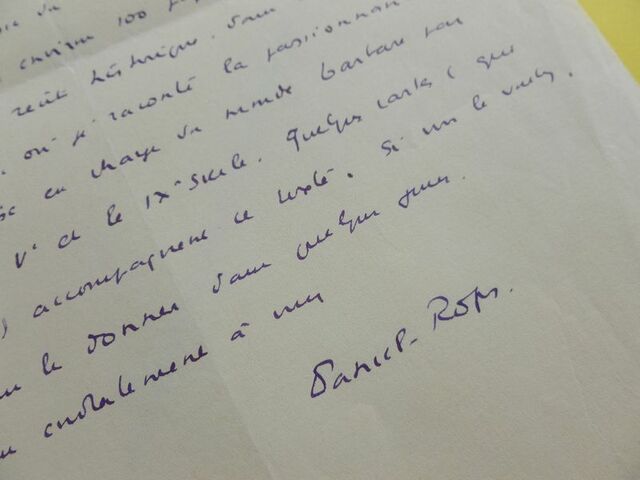 environ 100
récit historique. Dans
où je raconte la passionnant
en charge du monde barbare par
V° et le IX° siècle. Quelques cartes (que
accompagnent ce texte. Si vous le voulez,
le donner dans quelques jours.
cordialement à vous
Daniel-Rops.